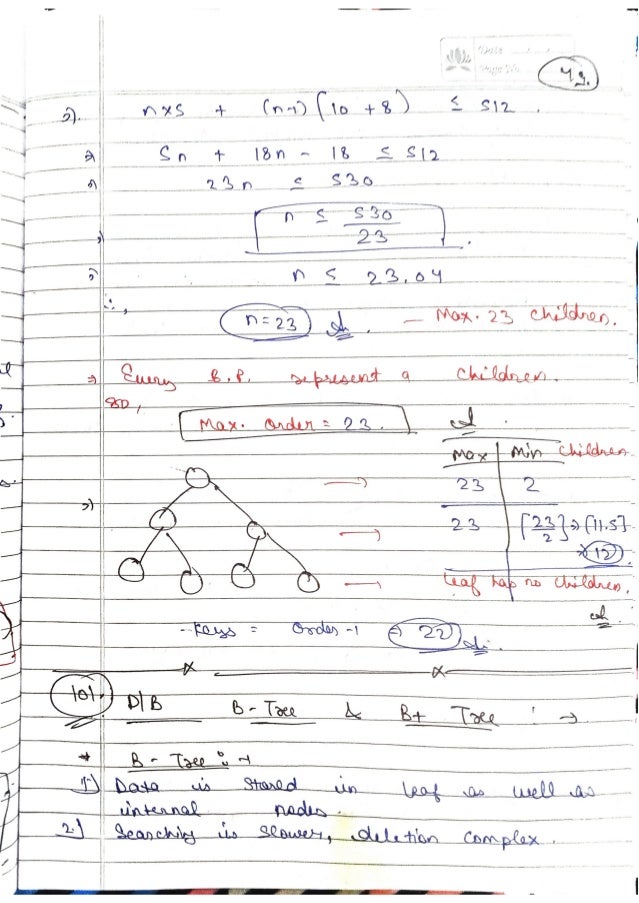 49.
⇒). n×5 + (n-1) (10 + 8) ≤ 512.
⇒ 5n + 18n - 18 ≤ 512
⇒ 23n ≤ 530
⇒ n ≤ 530/23.
⇒ n ≤ 23.04
∴, n=23 Ans. — Max. 23 Children.
⇒ Every B.P. represent a Children.
SO,
Max. Order = 23.
Max | Min Children
⇒) → 23 | 2
→ 23 | ⌈23/2⌉ ⇒ ⌈11.5⌉
⇒ 12
→ Leaf has no Children.
keys = Order-1 ⇒ 22 Ans.
101. D/B B-Tree & B+ Tree : →
* B-Tree : →
1) Data is stored in leaf as well as
internal nodes.
2.) Searching is slower, deletion complex.